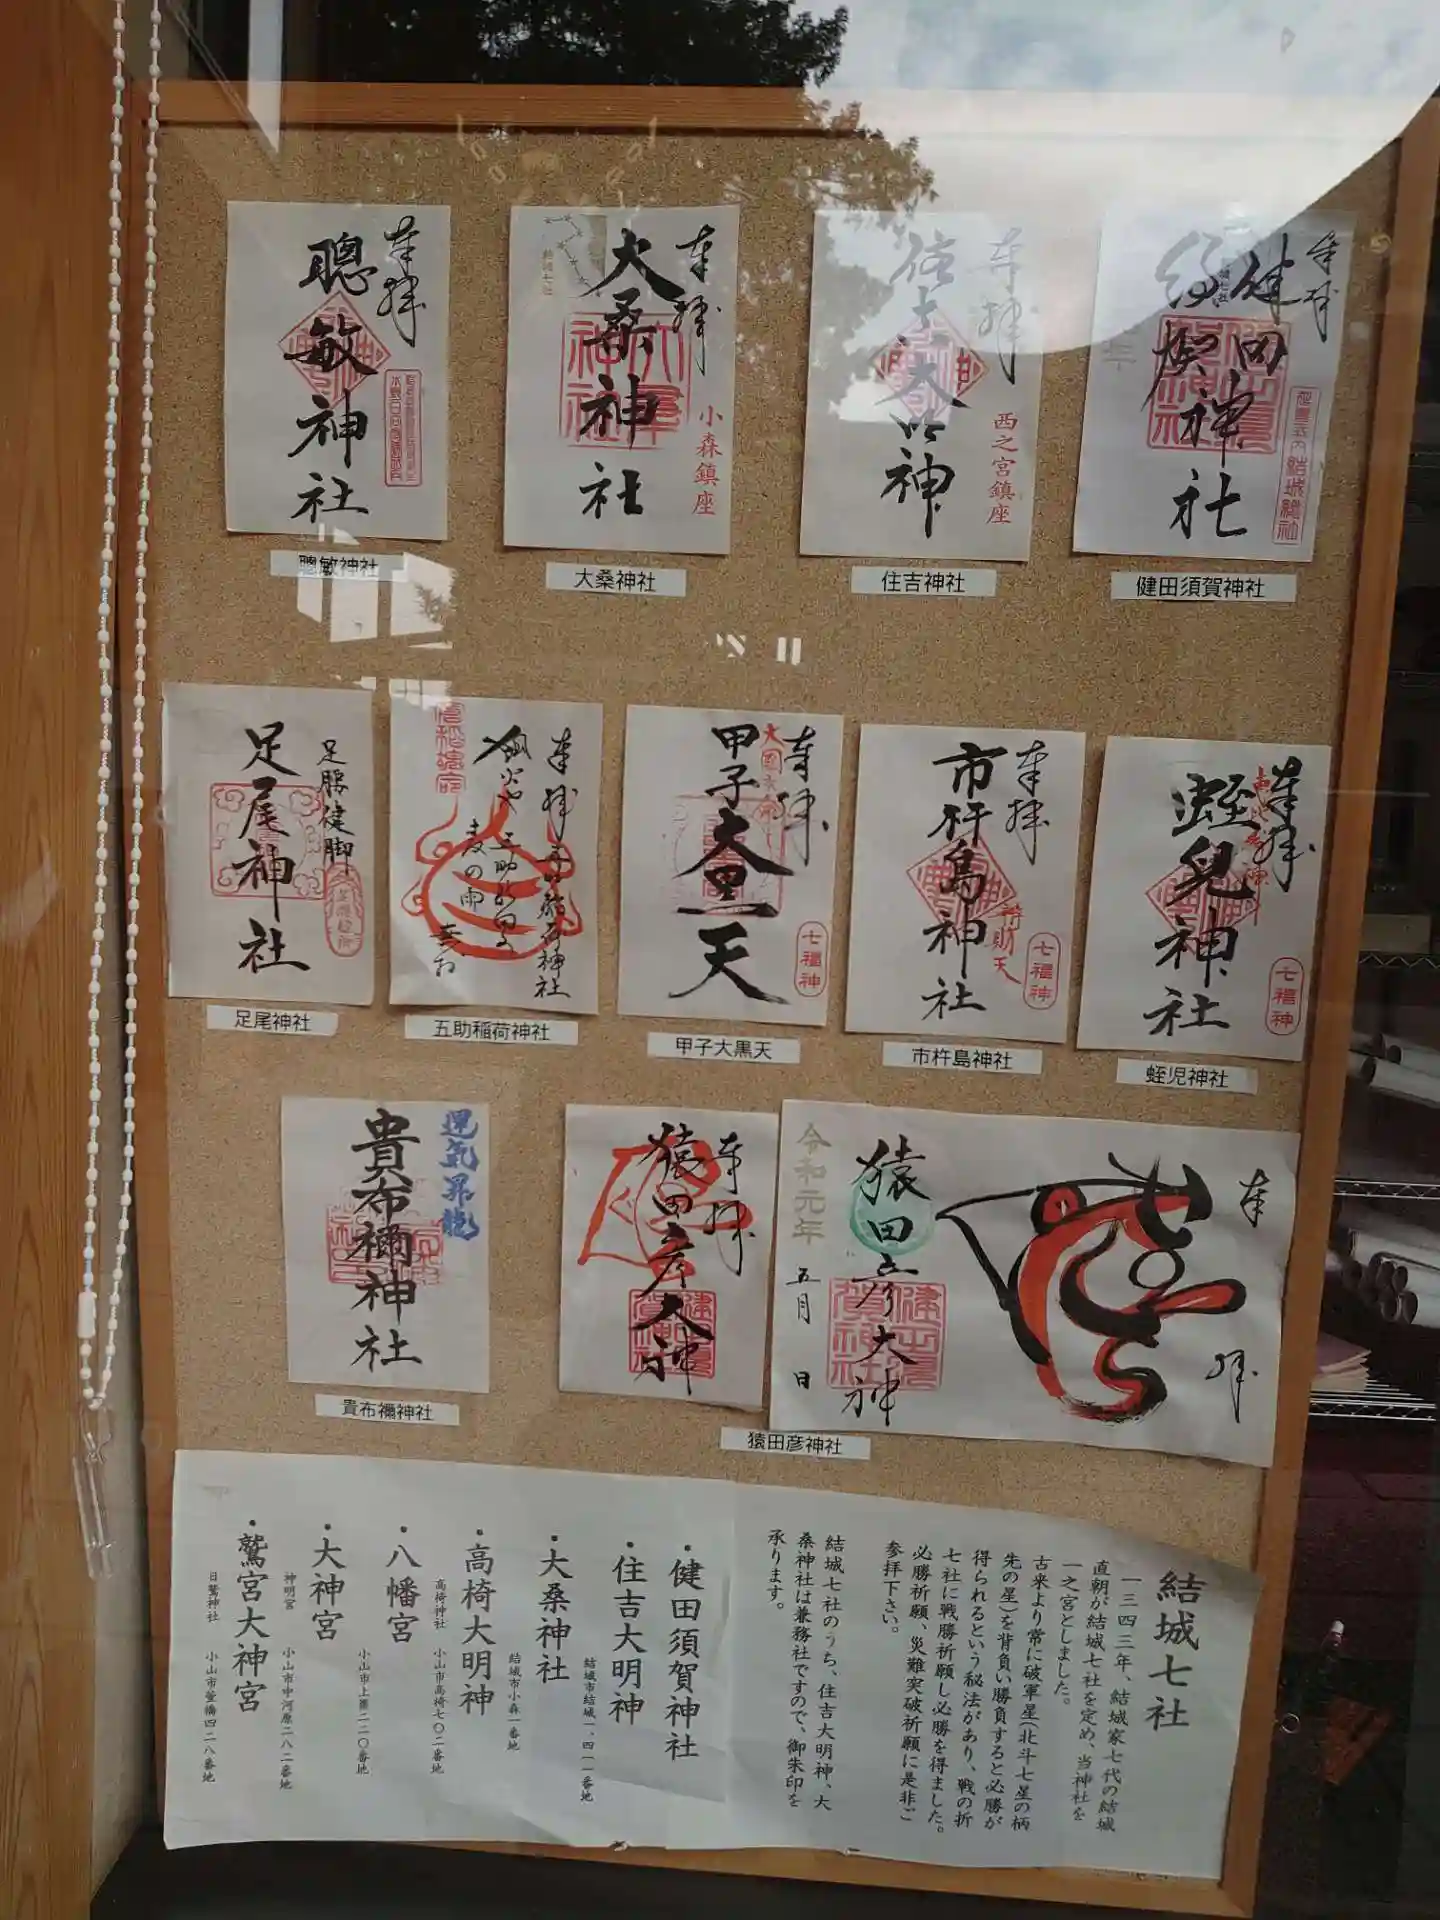 奉拝
聰敏神社
聰敏神社
奉拝
大桑神社
小森鎮座
結城七社
大桑神社
奉拝
住吉大明神
西之宮鎮座
住吉神社
奉拝
健田須賀神社
結城總社
健田須賀神社
足腰健脚
足尾神社
足尾神社
奉拝
五助稲荷神社
五助稲荷神社
奉拝
甲子大黒天
七福神
甲子大黒天
奉拝
市杵島神社
七福神
市杵島神社
奉拝
蛭兒神社
七福神
蛭児神社
運気昇龍
貴布禰神社
貴布禰神社
奉拝
猿田彦大神
奉拝
猿田彦大神
令和元年
五月 日
猿田彦神社
結城七社
一三四三年、結城家七代の結城
直朝が結城七社を定め、当神社を
一之宮としました。
古来より常に破軍星(北斗七星の柄
先の星)を背負い勝負すると必勝が
得られるという秘法があり、戦の折
七社に戦勝祈願し必勝を得ました。
必勝祈願、災難突破祈願に是非ご
参拝下さい。
結城七社のうち、住吉大明神、大
桑神社は兼務社ですので、御朱印を
承ります。
・健田須賀神社
・住吉大明神
結城市結城一、四一一番地
・大桑神社
結城市小森一番地
・高椅大明神
高椅神社 小山市高椅七〇二番地
・八幡宮
小山市上梁二二〇番地
・大神宮
神明宮 小山市中河原二八二番地
・鷲宮大神宮
日鷲神社 小山市萱橋四二八番地